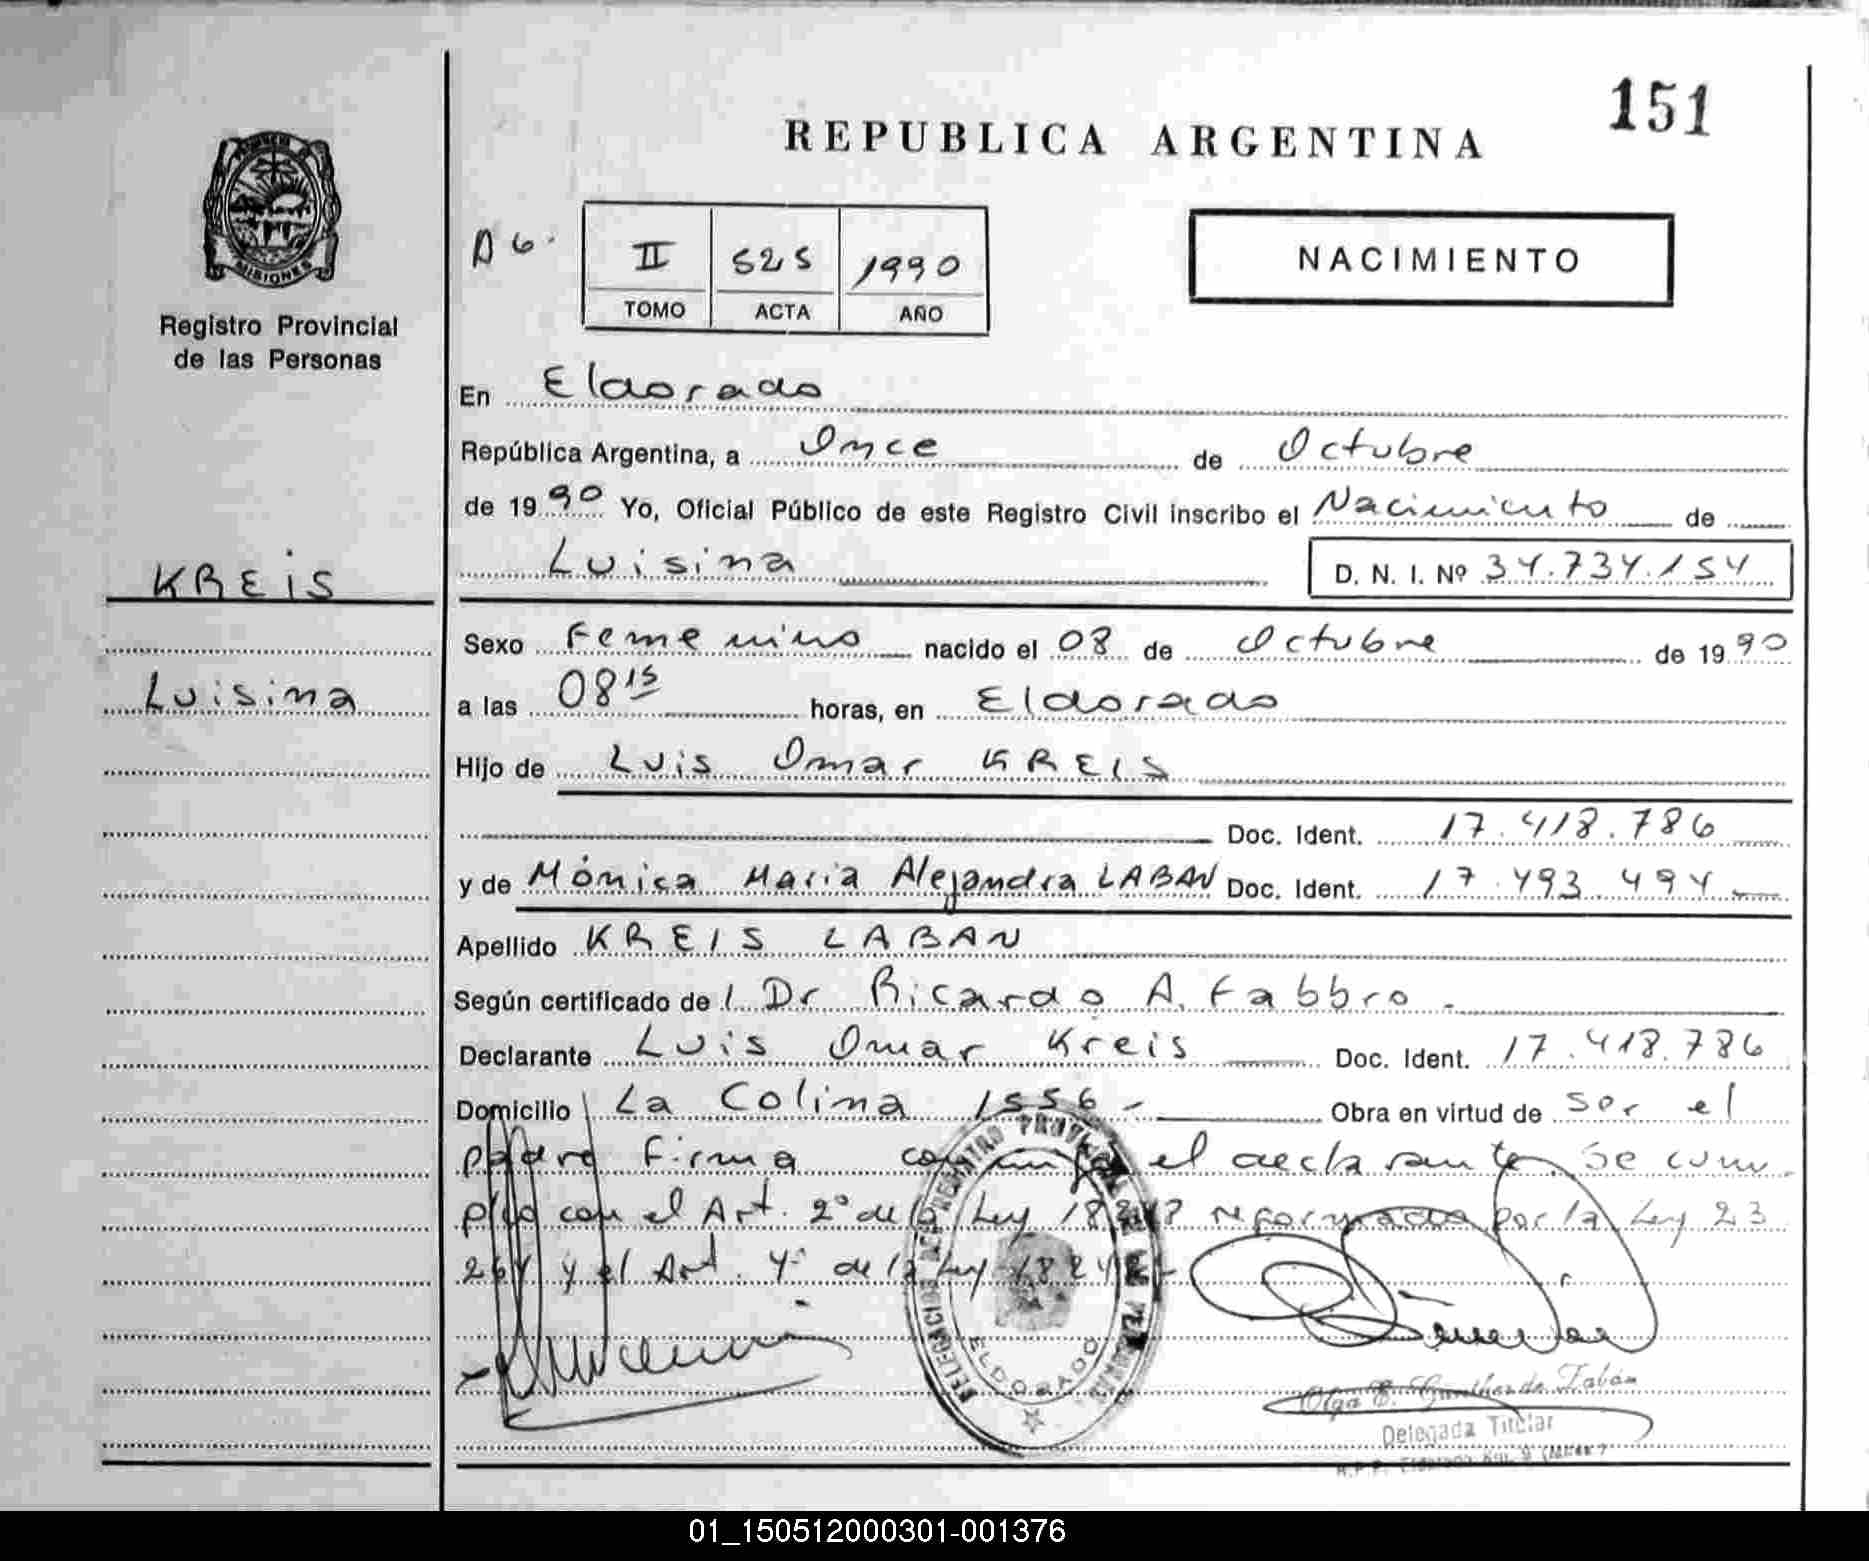 151
REPUBLICA ARGENTINA
MISIONES
Registro Provincial
de las Personas
II 525 1990
TOMO ACTA AÑO
NACIMIENTO
En Eldorado
República Argentina, a Once de Octubre
de 1990 Yo, Oficial Público de este Registro Civil inscribo el Nacimiento de
KREIS
Luisina D. N. I. Nº 34.734.154
Sexo Femenino nacido el 08 de Octubre de 1990
Luisina
a las 08 15 horas, en Eldorado
Hijo de Luis Omar KREIS
Doc. Ident. 17.418.786
y de Mónica Maria Alejandra LABAN Doc. Ident. 17.493.494
Apellido KREIS LABAN
Según certificado de l Dr Ricardo A. Fabbro.
Declarante Luis Omar Kreis Doc. Ident. 17.418.786
Domicilio La Colina 1556- Obra en virtud de ser el
padre Firma el declarante. Se cum
plió con el Art. 2º de la Ley reformada por la Ley 23
264 y el Art. 4º de la Ley 18248-
ELDORADO
Delegada Titular
01_150512000301-001376